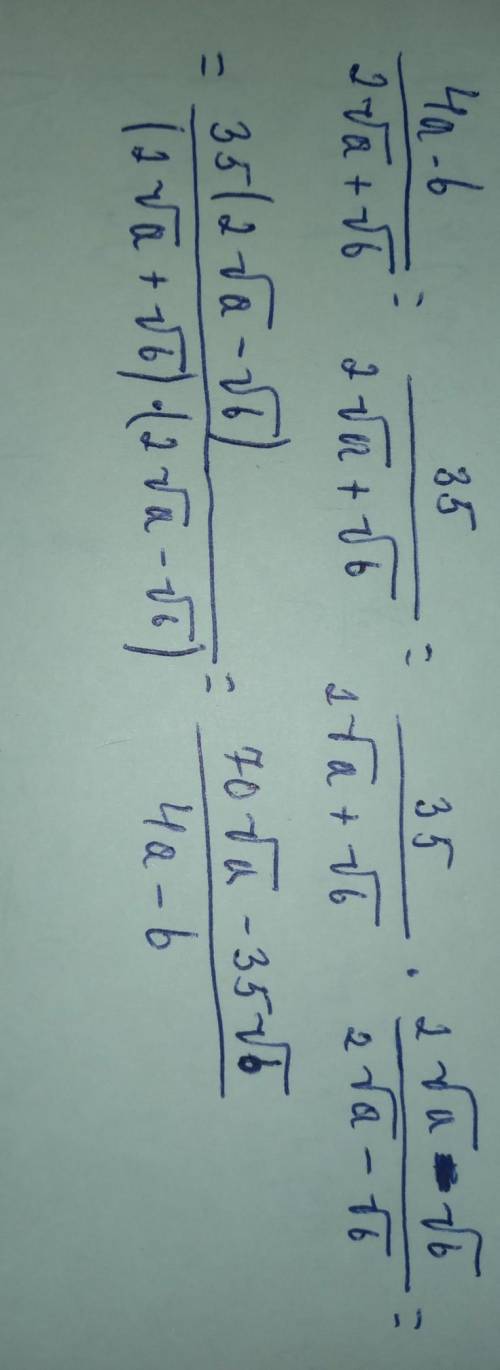 (4a-b)/(2√a+√b) = 35/(2√a+√b) = 35/(2√a+√b) · (2√a-√b)/(2√a-√b) =
= 35(2√a-√b)/((2√a+√b)·(2√a-√b)) = (70√a-35√b)/(4a-b)